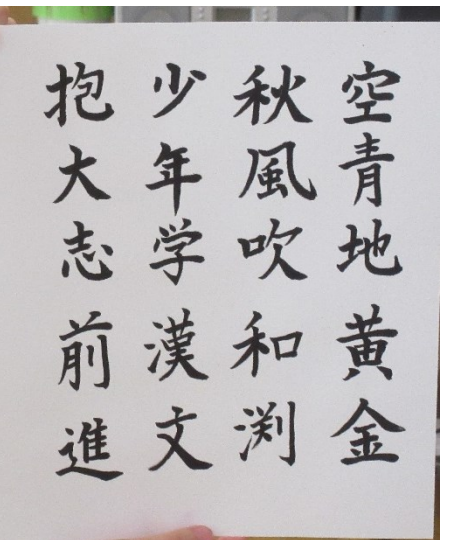 空青地黄金
秋風吹和渕
少年学漢文
抱大志前進